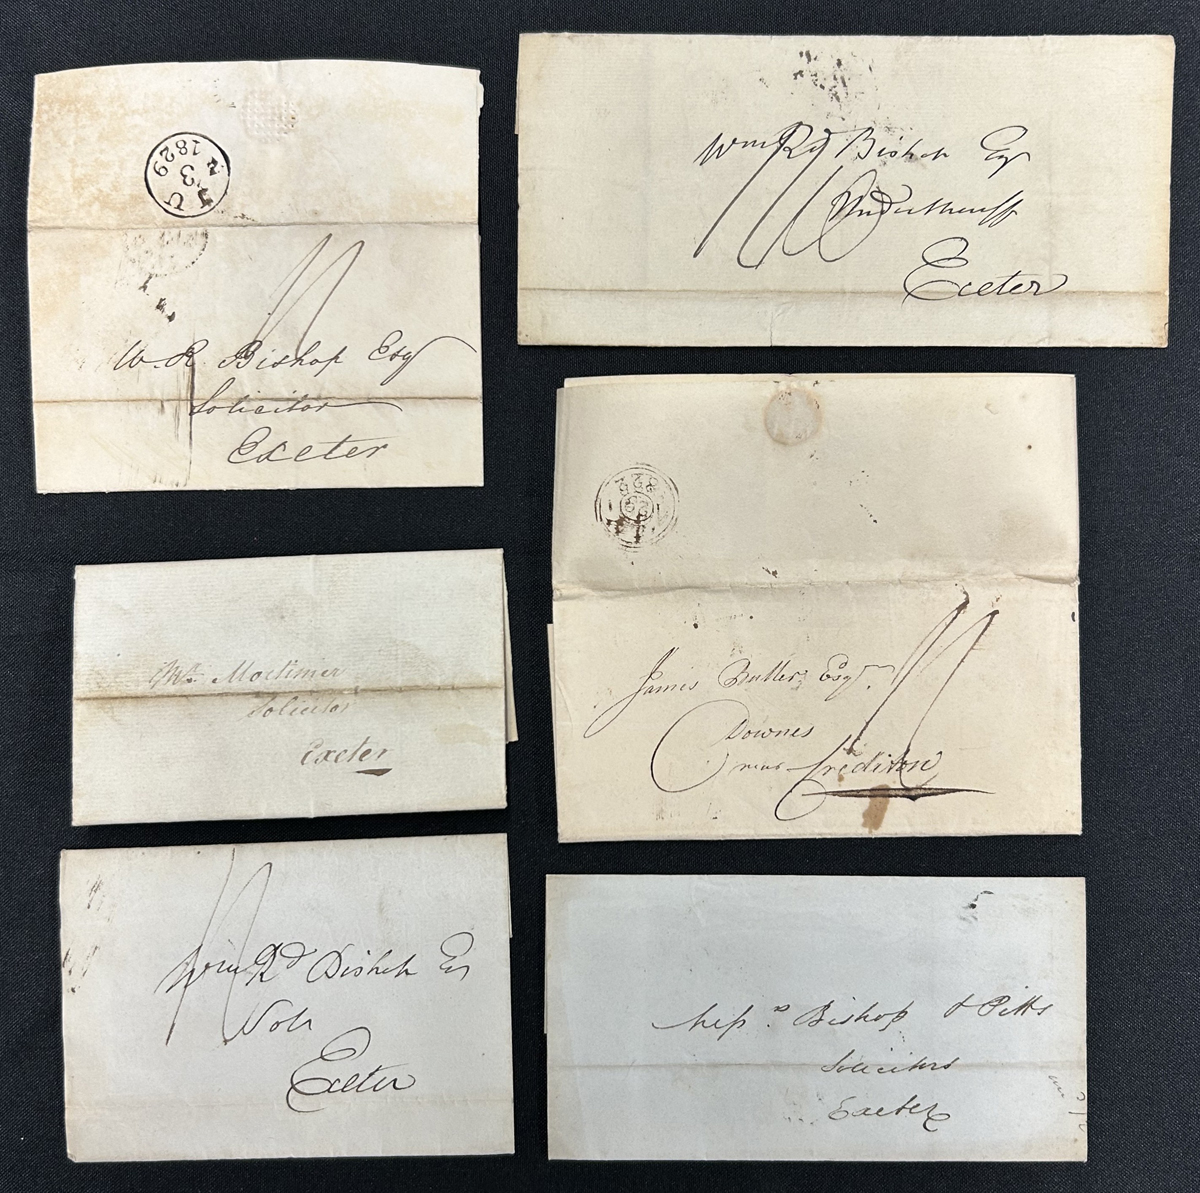 JU
13
1829
W. R. Bishop Esq
Solicitor
Exeter
Wm Rd Bishop Esq
Undersheriff
Exeter
Mr. Mortimer
Solicitor
Exeter
James Buller Esqr.
Downes
near Crediton
Wm Rd Bishop Es
Exeter
Bishop & Pitts
Solicitors
Exeter